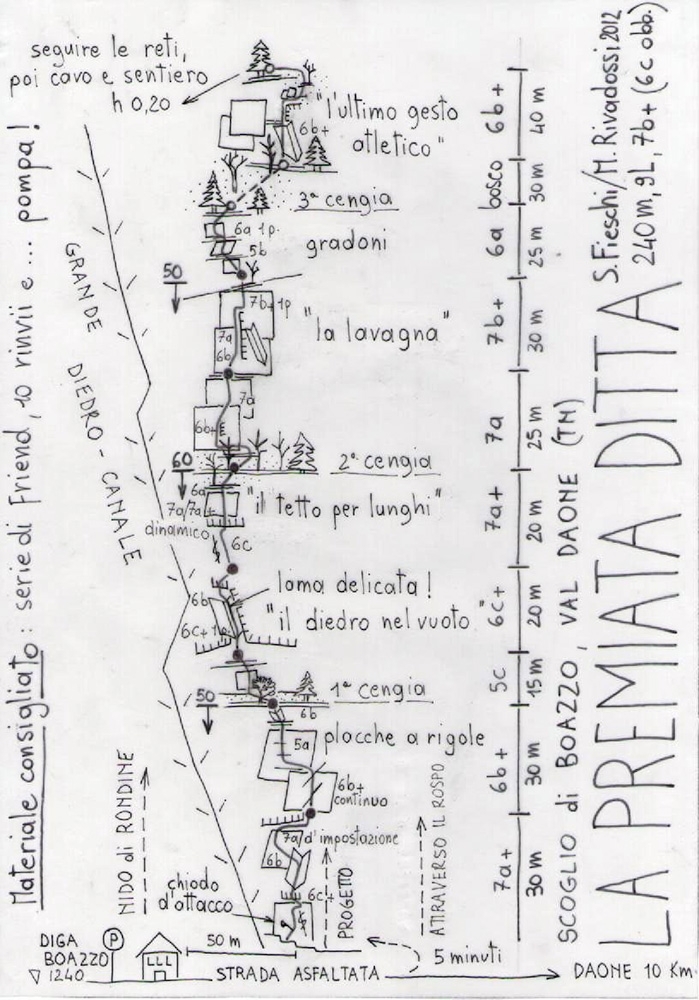 seguire le reti,
poi cavo e sentiero
h 0,20
"l'ultimo gesto
atletico"
6b+
3ª cengia
6a 1p.
5b
gradoni
50
7b+ 1p
"la lavagna"
7a
6b
7a
6b+
60
2ª cengia
6a
7a/7a+
dinamico
"il tetto per lunghi"
6c
lama delicata!
"il diedro nel vuoto"
6b
6c+ 1p
1ª cengia
50
6b
placche a rigole
5a
6b+
continuo
7a/d'impostazione
6b
6c+
chiodo
d'attacco
PROGETTO
ATTRAVERSO IL ROSPO
NIDO di RONDINE
GRANDE
DIEDRO - CANALE
Materiale consigliato: serie di Friend, 10 rinvii e.... pompa!
6b+
40 m
bosco
30 m
6a
25 m
7b+
30 m
7a
25 m
7a+
20 m
6c+
20 m
5c
15 m
6b+
30 m
7a+
30 m
SCOGLIO di BOAZZO, VAL DAONE (TN)
LA PREMIATA DITTA
S. Fieschi/M. Rivadossi 2012
240 m, 9L, 7b+ (6c obb.)
DIGA
BOAZZO
1240
P
50 m
5 minuti
STRADA ASFALTATA
DAONE 10 Km.